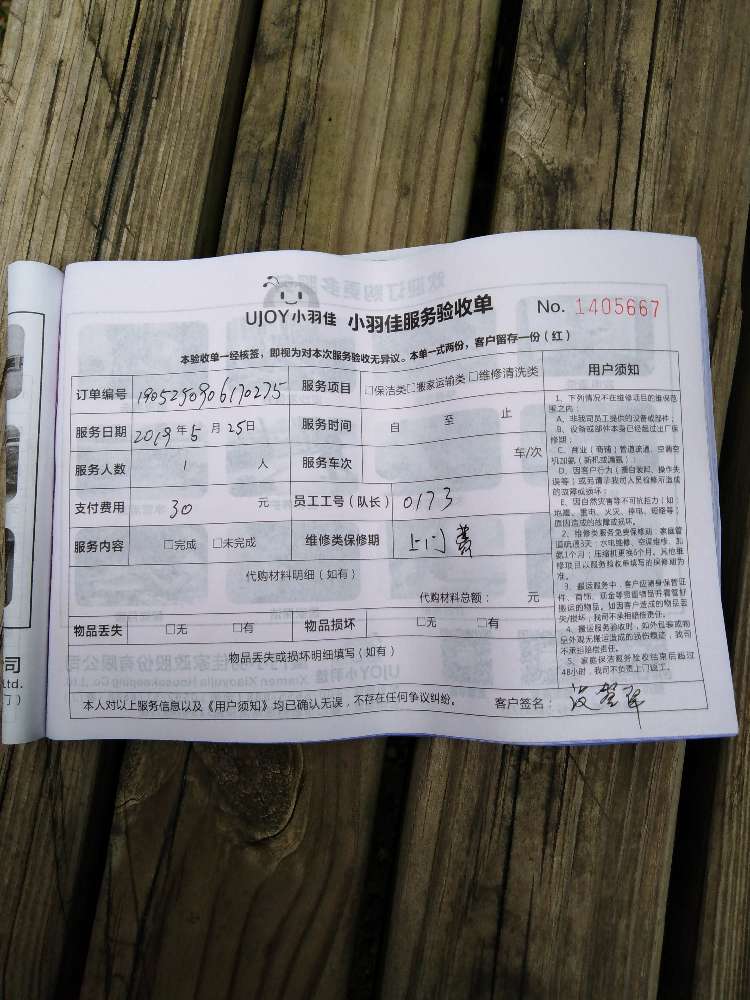 UJOY小羽佳 小羽佳服务验收单 No. 1405667
本验收单一经核签，即视为对本次服务验收无异议。本单一式两份，客户留存一份（红）
订单编号 1905250906170275 服务项目 □保洁类□搬家运输类□维修清洗类
服务日期 2019年5月25日 服务时间 自 至 止
服务人数 1 人 服务车次 车/次
支付费用 30 元 员工工号（队长） 0173
服务内容 □完成 □未完成 维修类保修期 上门费
代购材料明细（如有）
代购材料总额： 元
物品丢失 □无 □有 物品损坏 □无 □有
物品丢失或损坏明细填写（如有）
本人对以上服务信息以及《用户须知》均已确认无误，不存在任何争议纠纷。 客户签名：
用户须知
1、下列情况不在维修项目的维保范
围之内：
A、非我司员工提供的设备或部件；
B、设备或部件本身已经超过出厂保
修期；
C、商业（商铺）管道疏通、空调空
机加氨（新机或漏氨）；
D、因客户行为（擅自装卸、操作失
误等）或另请非我司人员检修所造成
的故障或损坏；
E、因自然灾害等不可抗拒力（如：
地震、雷电、火灾、停电、短路等）
原因造成的故障或损坏。
2、维修类服务免费保修期：家庭管
道疏通3天；水电维修、空调维修、加
氨1个月；压缩机更换6个月。其他维
修项目以服务验收单填写的保修期为
准。
3、搬运服务中，客户应随身保管证
件、首饰、现金等贵重物品并看管好
搬运的物品。如因客户造成的物品丢
失/损坏，我司不承担赔偿责任。
4、搬运服务验收时，如外包装或物
品外观无搬运造成的损伤痕迹，我司
不承担赔偿责任。
5、家庭保洁服务验收结束后超过
48小时，我司不负责上门返工。
司
Ltd.
门）